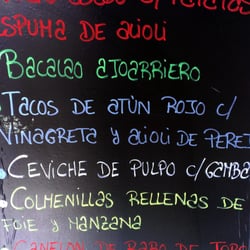 ESPUMA DE ALIOLI
BACALAO AJOARRIERO
TACOS DE ATÚN ROJO C/
VINAGRETA Y ALIOLI DE PEREJ
CEVICHE DE PULPO C/GAMBA
COLMENILLAS RELLENAS DE
FOIE Y MANZANA
CANELON DE RABO DE TORO